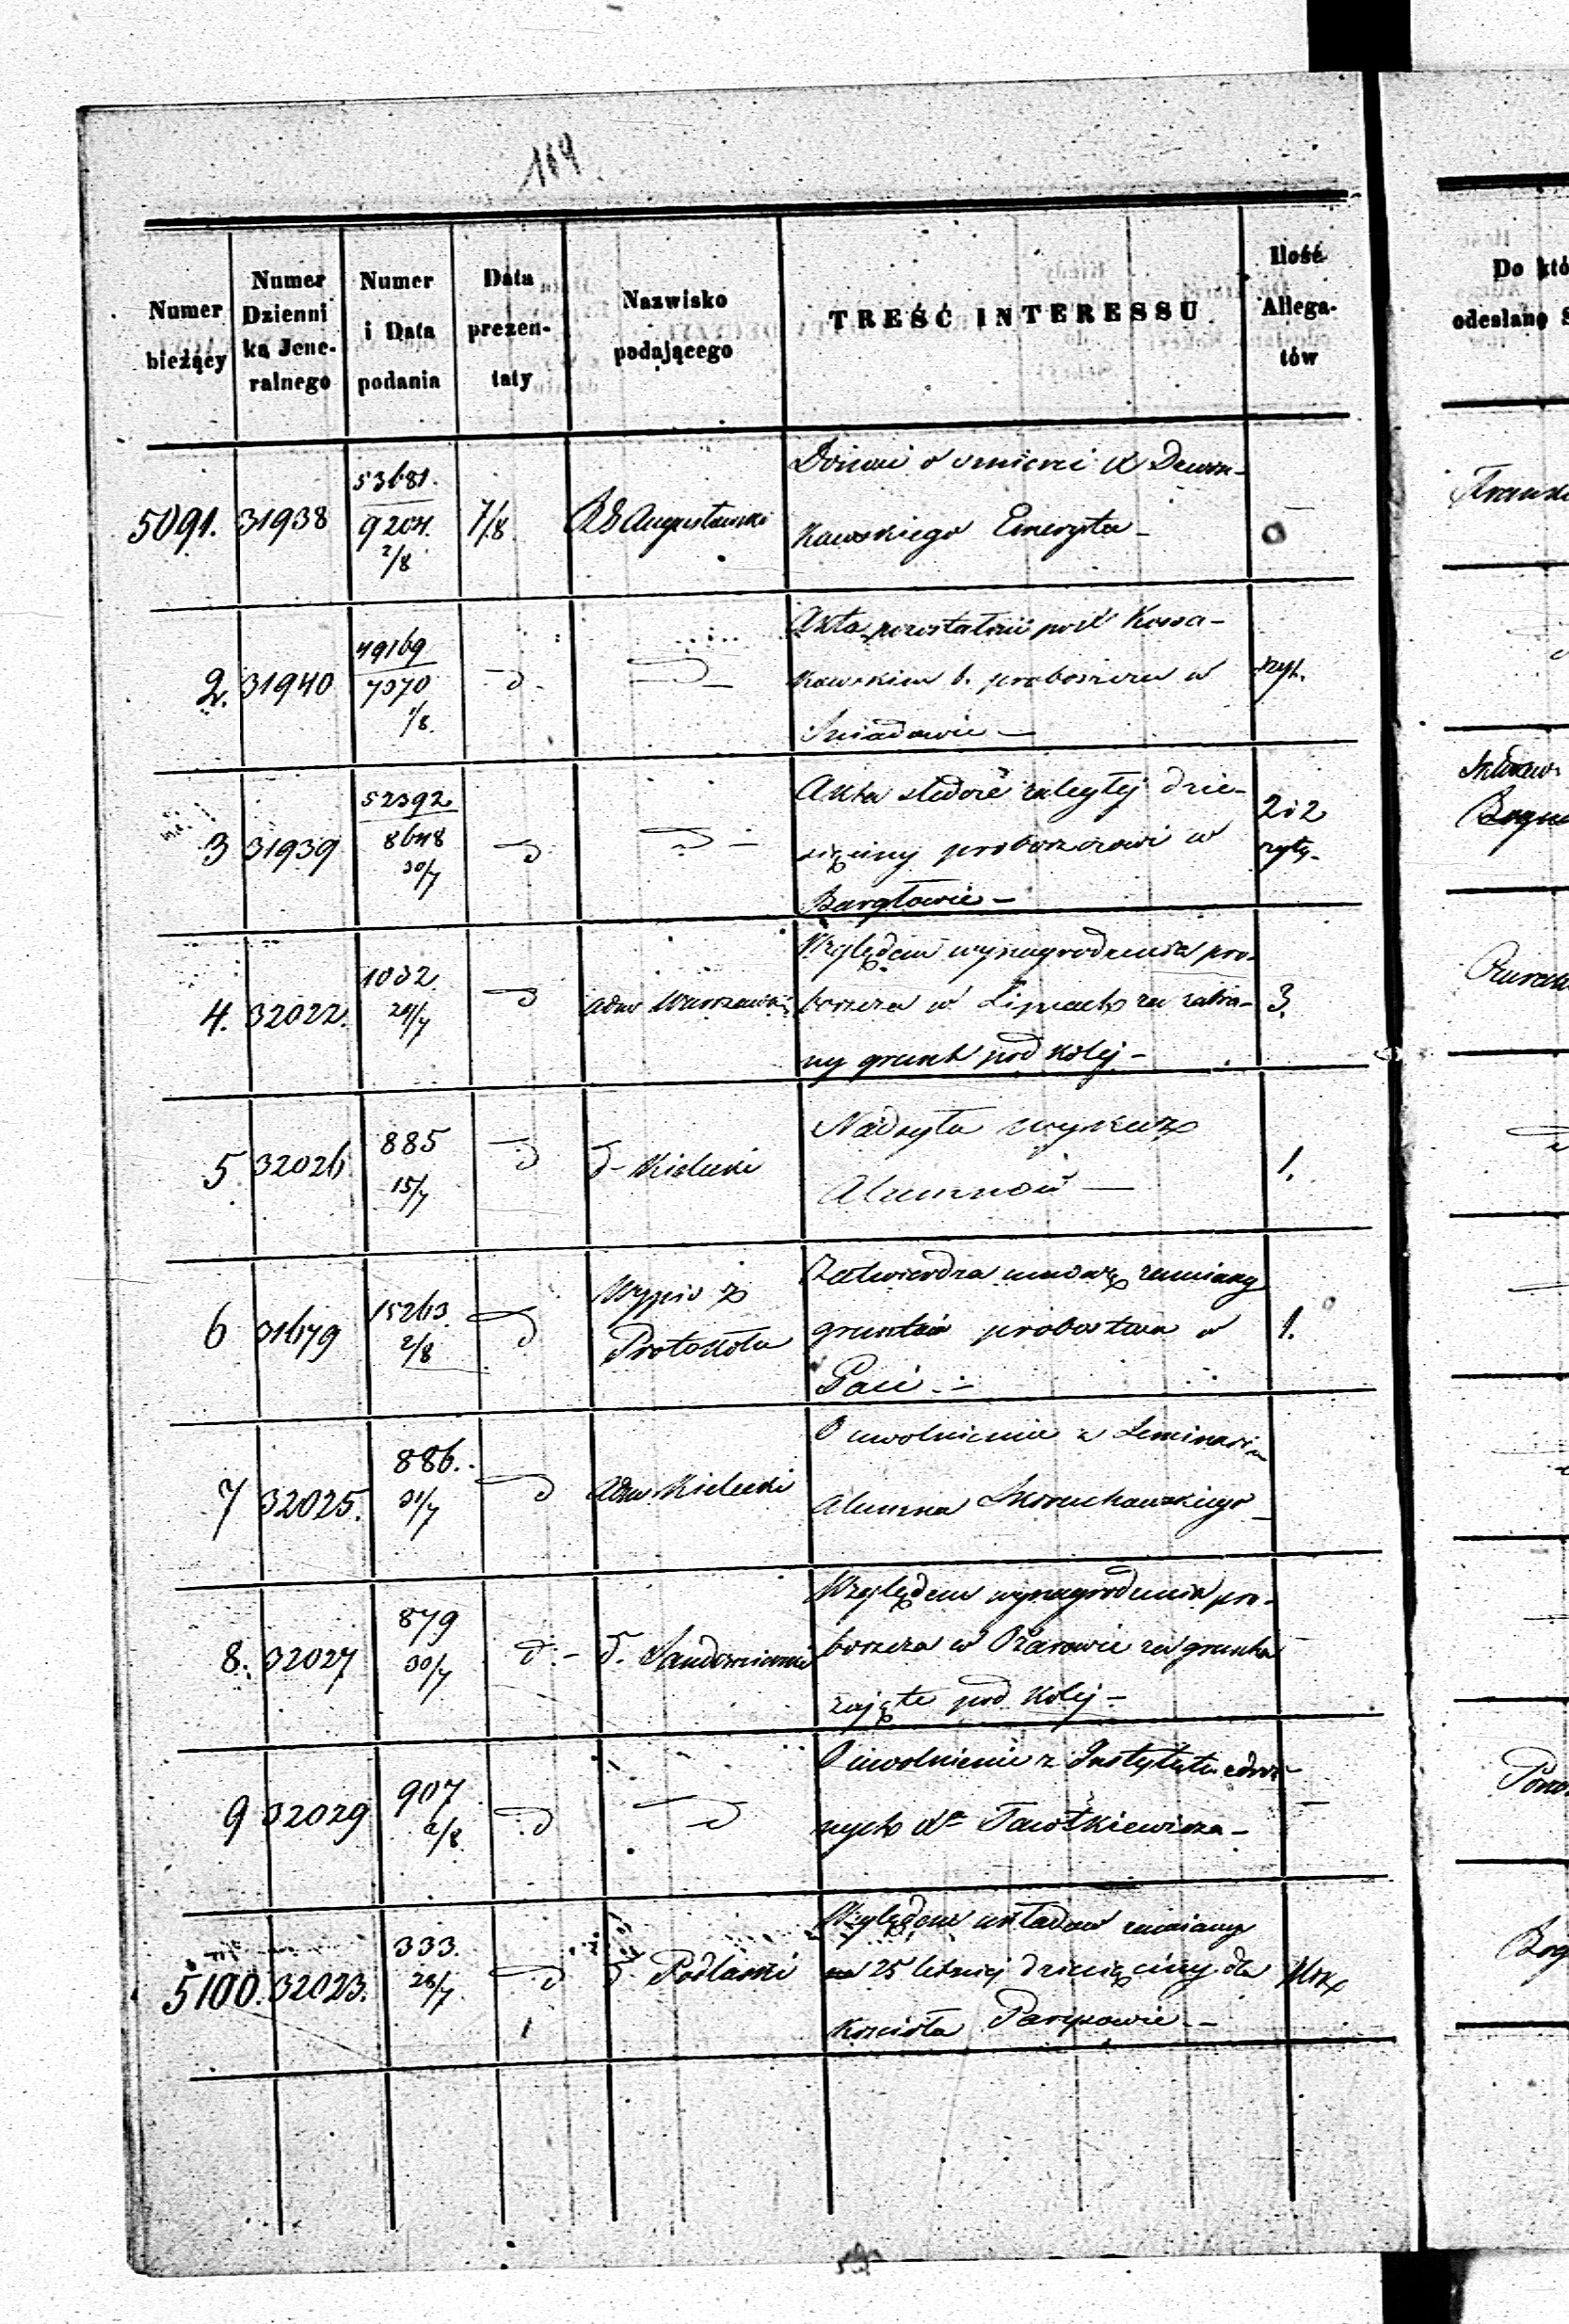 169
Numer bieżący
Numer Dzienni ka Jene- ralnego
Numer i Data podania
Data prezen- taty
Nazwisko podającego
TREŚĆ INTERESSU
Ilość Allega- tów
Do któ
odesłano S
5091. 31938 53681. 9204. 2/8 7/8 RG Augustowski
Donosi o śmierci X
kowskiego Emeryta - 0
2. 31940 49169 7370 1/8. d
Akta pozostałości po X Kossa-
kowskim b. proboszczu w szyt.
Śniadowie -
3 31939 52392 8648 30/7 d d -
Akta śledcze zaległej dzie- 2 i 2
sięciny proboszczowi w szyty.
Bargłowie -
4. 32022. 1032. 29/7 d adm Warszawski
Względem wynagrodzenia pro-
boszcza w Lipcach za zabra- 3.
ny grunt pod kolej -
5 32026 885 15/7 d d - Kielecki
Nadsyła wykaz
Alumnów - 1.
6 31679 15263. 2/8 d Wypis z
Protokółu
Zatwierdza umowę zamiany
gruntów probostwa w 1.
Paci. -
7 32025. 886. 31/7 d adm Kielecki
O uwolnienie z Seminarium
alumna
8. 32027 879 30/7 d. - d. Sandomierski
Względem wynagrodzenia pro-
boszcza w Ożarowie za grunta
zajęte pod kolej -
9 32029 907 2/8 d d
O uwolnienie z Instytutu zdroż-
nych Xa -
5100. 32023. 333. 28/7 d d Podlaski
Względem układów zamiany
na 25 letniej dziesięciny dla
Kościoła Parysowie. -
Pono.